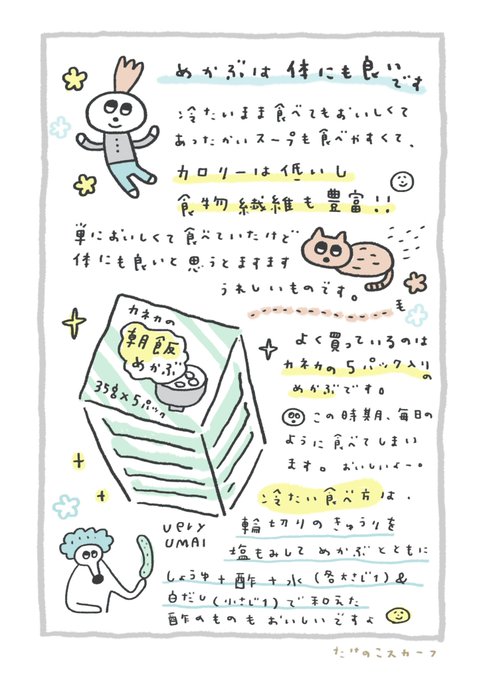 めかぶは体にも良いです
冷たいまま食べてもおいしくて
あったかいスープも食べやすくて、
カロリーは低いし
食物繊維も豊富!!
単においしくて食べていたけど
体にも良いと思うとますます
うれしいものです。
毛
カネカの
朝飯
めかぶ
35g×5パック
よく買っているのは
カネカの5パック入りの
めかぶです。
この時期、毎日の
ように食べてしまい
ます。おいしいよー。
冷たい食べ方は、
輪切りのきゅうりを
塩もみしてめかぶとともに
しょうゆ+酢+水(各大さじ1)&
白だし(小さじ1)で和えた
酢のものもおいしいですよ
very
UMAI
たけのこスカーフ